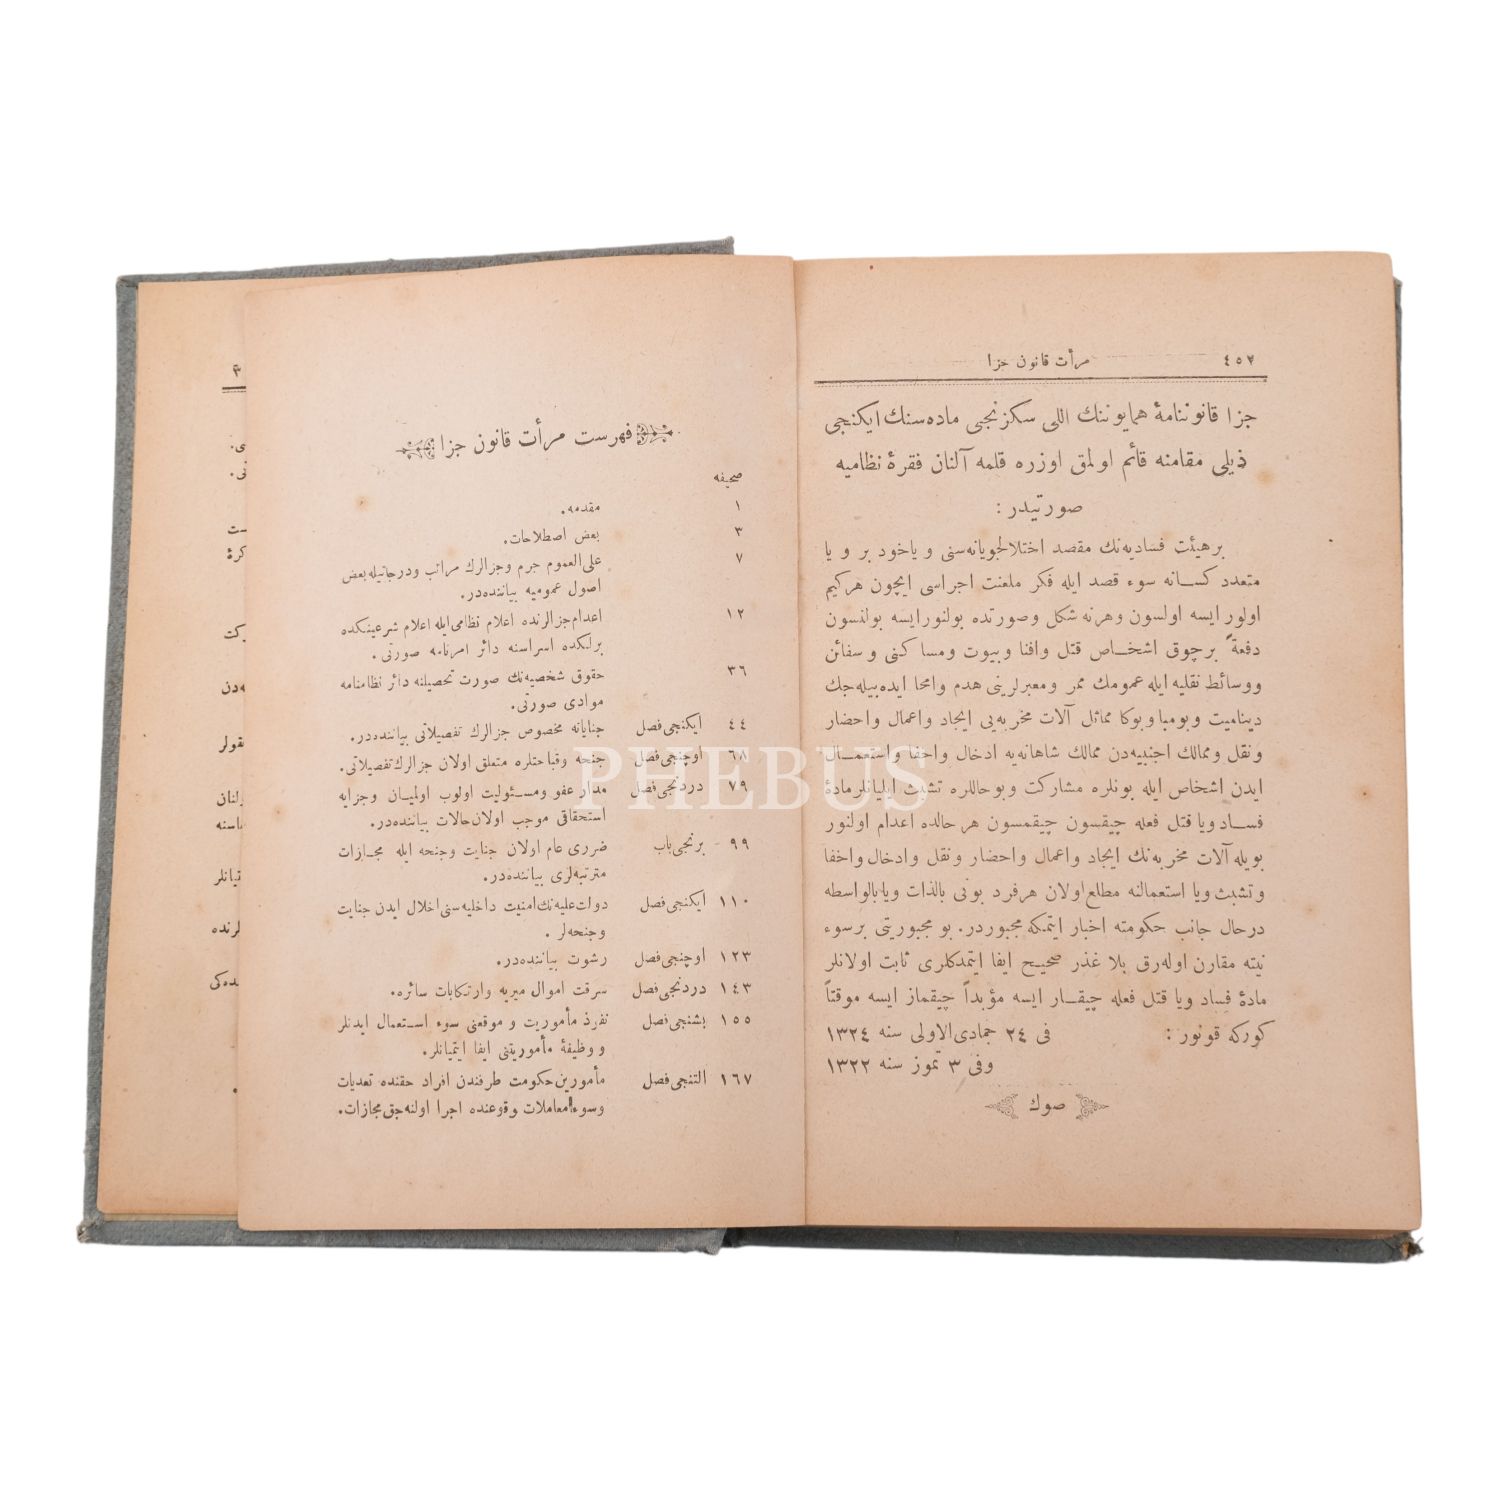 ٤٥٢
مرأت قانون جزا
جزا قانوننامهٔ همايوننك اللى سكزنجى ماده سنك ايكنجى
ذيلى مقامنه قائم اولمق اوزره قلمه آلنان فقرهٔ نظاميه
صورتيدر :
برهيئت فساديه‌نك مقصد اختلالجويانه‌سنى و ياخود بر و يا
متعدد كسانه سوء قصد ايله فكر ملعنت اجراسى ايچون هركيم
اولور ايسه اولسون وهرنه شكل وصورتده بولنور ايسه بولنسون
دفعةً برچوق اشخاص قتل وافنا وبيوت ومساكنى و سفائن
ووسائط نقليه ايله عمومك ممر ومعبرلرينى هدم وامحا ايده‌بيله‌جك
ديناميت وبومبا وبوكا مماثل آلات مخربه‌يى ايجاد واعمال واحضار
ونقل وممالك اجنبيه‌دن ممالك شاهانه‌يه ادخال واخفا واستعمال
ايدن اشخاص ايله بونلره مشاركت وبوحاللره تشبث ايليانلر مادهٔ
فساد ويا قتل فعله چيقسون چيقمسون هرحالده اعدام اولنور
بويله آلات مخربه‌نك ايجاد واعمال واحضار ونقل وادخال واخفا
وتشبث ويا استعمالنه مطلع اولان هرفرد بونى بالذات ويا بالواسطه
درحال جانب حكومته اخبار ايتمكه مجبوردر. بو مجبوريتى برسوء
نيته مقارن اوله‌رق بلا عذر صحيح ايفا ايتمدكلرى ثابت اولانلر
مادهٔ فساد ويا قتل فعله چيقار ايسه مؤبداً چيقماز ايسه موقتاً
كوركه قونور : فى ٢٤ جمادى‌الاولى سنه ١٣٢٤
وفى ٣ تموز سنه ١٣٢٢
صوك
فهرست مرأت قانون جزا
صحيفه
١ مقدمه.
٣ بعض اصطلاحات.
٧ على‌العموم جرم وجزالرك مراتب ودرجاتيله بعض
اصول عموميه بياننده‌در.
١٢ اعدام جزالرنده اعلام نظامى ايله اعلام شرعينكده
برلكده اسراسنه دائر امرنامه صورتى.
٣٦ حقوق شخصيه‌نك صورت تحصيلنه دائر نظامنامه
موادى صورتى.
٤٤ ايكنجى فصل جنايانه مخصوص جزالرك تفصيلاتى بياننده‌در.
٦٨ اوچنجى فصل جنحه وقباحتلره متعلق اولان جزالرك تفصيلاتى.
٧٩ دردنجى فصل مدار عفو ومسئوليت اولوب اولميان وجزايه
استحقاقى موجب اولان حالات بياننده‌در.
٩٩ برنجى باب ضررى عام اولان جنايت وجنحه ايله مجازات
مترتبه‌لرى بياننده‌در.
١١٠ ايكنجى فصل دولت عليه‌نك امنيت داخليه‌سنى اخلال ايدن جنايت
وجنحه‌لر .
١٢٣ اوچنجى فصل رشوت بياننده‌در.
١٤٣ دردنجى فصل سرقت اموال ميريه وارتكابات سائره.
١٥٥ بشنجى فصل نفوذ مأموريت و موقعنى سوء استعمال ايدنلر
و وظيفهٔ مأموريتنى ايفا ايتميانلر.
١٦٧ التنجى فصل مأمورين حكومت طرفندن افراد حقنده تعديات
وسوء معاملات وقوعنده اجرا اولنه‌جق مجازات.
PHEBUS